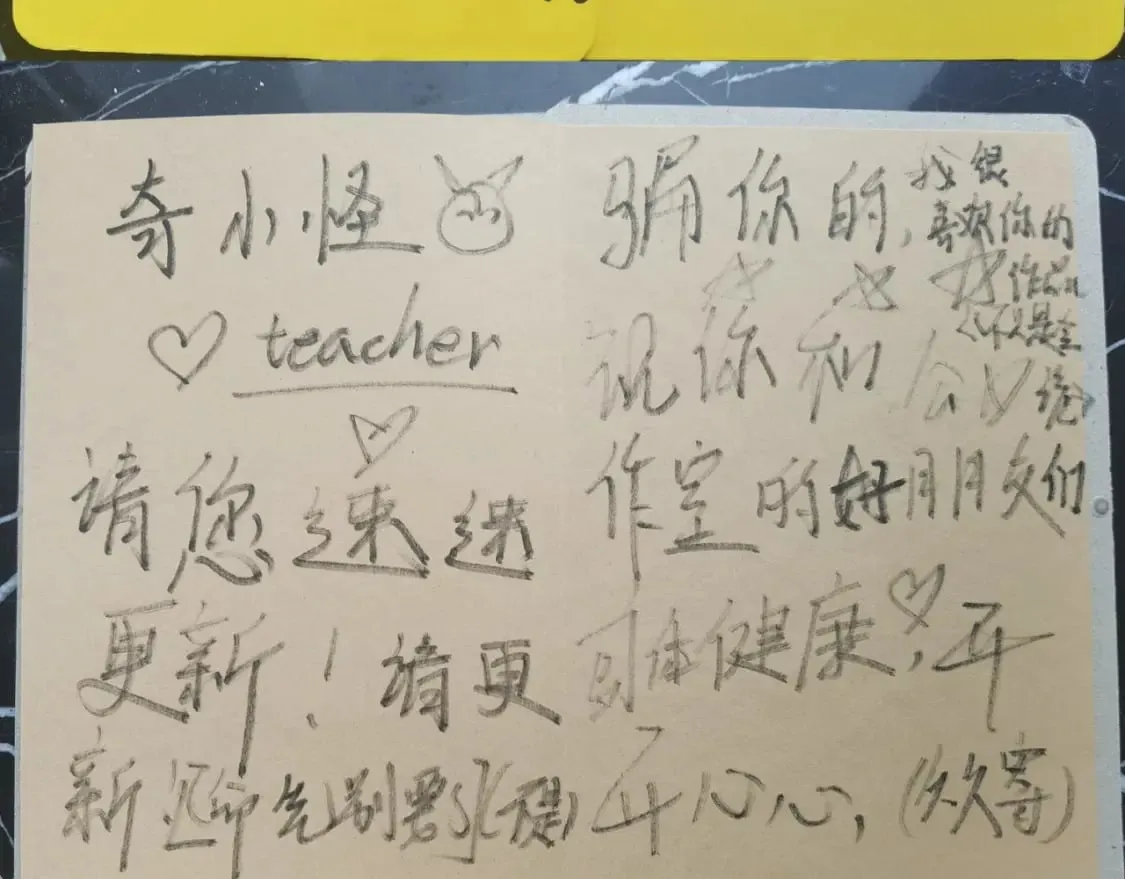 奇小怪
teacher
请您速速
更新！请更
新
骗你的，
我很
喜欢你的
作品
祝你和公
作室的好朋友们
身体健康，开
开心心，